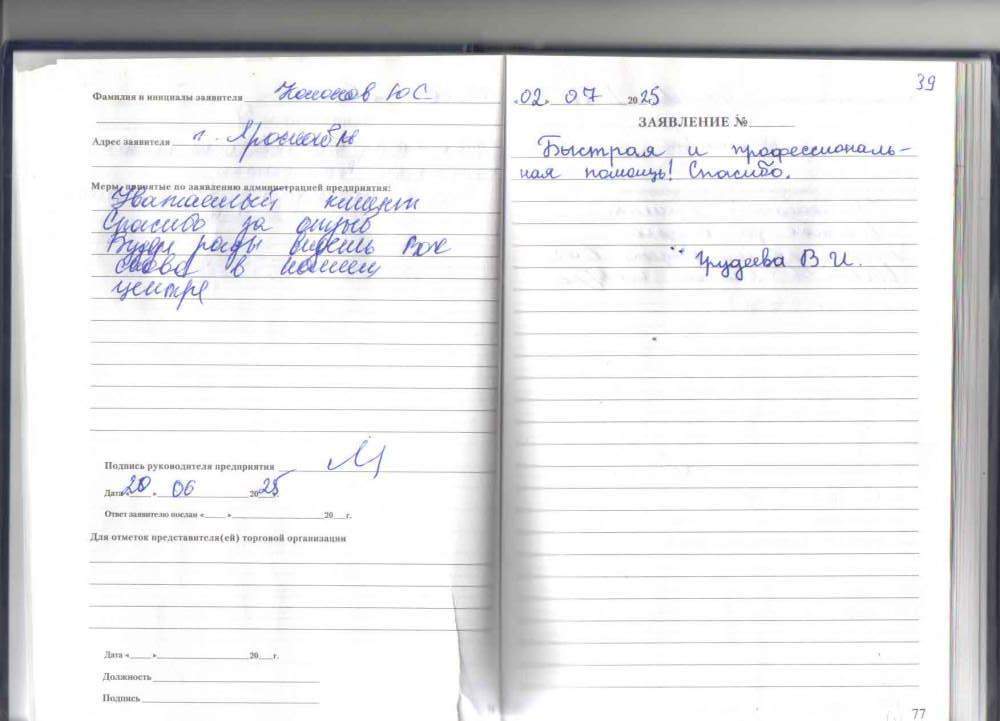 Фамилия и инициалы заявителя Ю С.
Адрес заявителя г. Ярославль
Меры, принятые по заявлению администрацией предприятия:
Уважаемый клиент
Спасибо за отзыв
Будем рады видеть Вас
снова в нашем
центре
Подпись руководителя предприятия
Дата «20» 06 2025 г.
Ответ заявителю послан «___» ___ 20__г.
Для отметок представителя(ей) торговой организации
Дата «___» ___ 20__г.
Должность
Подпись
39
02. 07 2025
ЗАЯВЛЕНИЕ №
Быстрая и профессиональ-
ная помощь! Спасибо.
Грудеева В И.
77